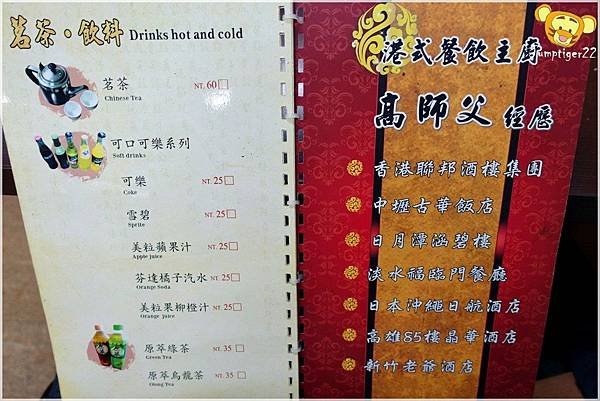 茗茶・飲料 Drinks hot and cold
茗茶 NT. 60
Chinese Tea
可口可樂系列
Soft drinks
可樂 NT. 25
Coke
雪碧 NT. 25
Sprite
美粒蘋果汁 NT. 25
Apple juice
芬達橘子汽水 NT. 25
Orange Soda
美粒果柳橙汁 NT. 25
Orange juice
原萃綠茶 NT. 35
Green Tea
原萃烏龍茶 NT. 35
Olong Tea
港式餐飲主廚
jumptiger22
高師父 經歷
香港聯邦酒樓集團
中壢古華飯店
日月潭涵碧樓
淡水福臨門餐廳
日本沖繩日航酒店
高雄85樓晶華酒店
新竹老爺酒店